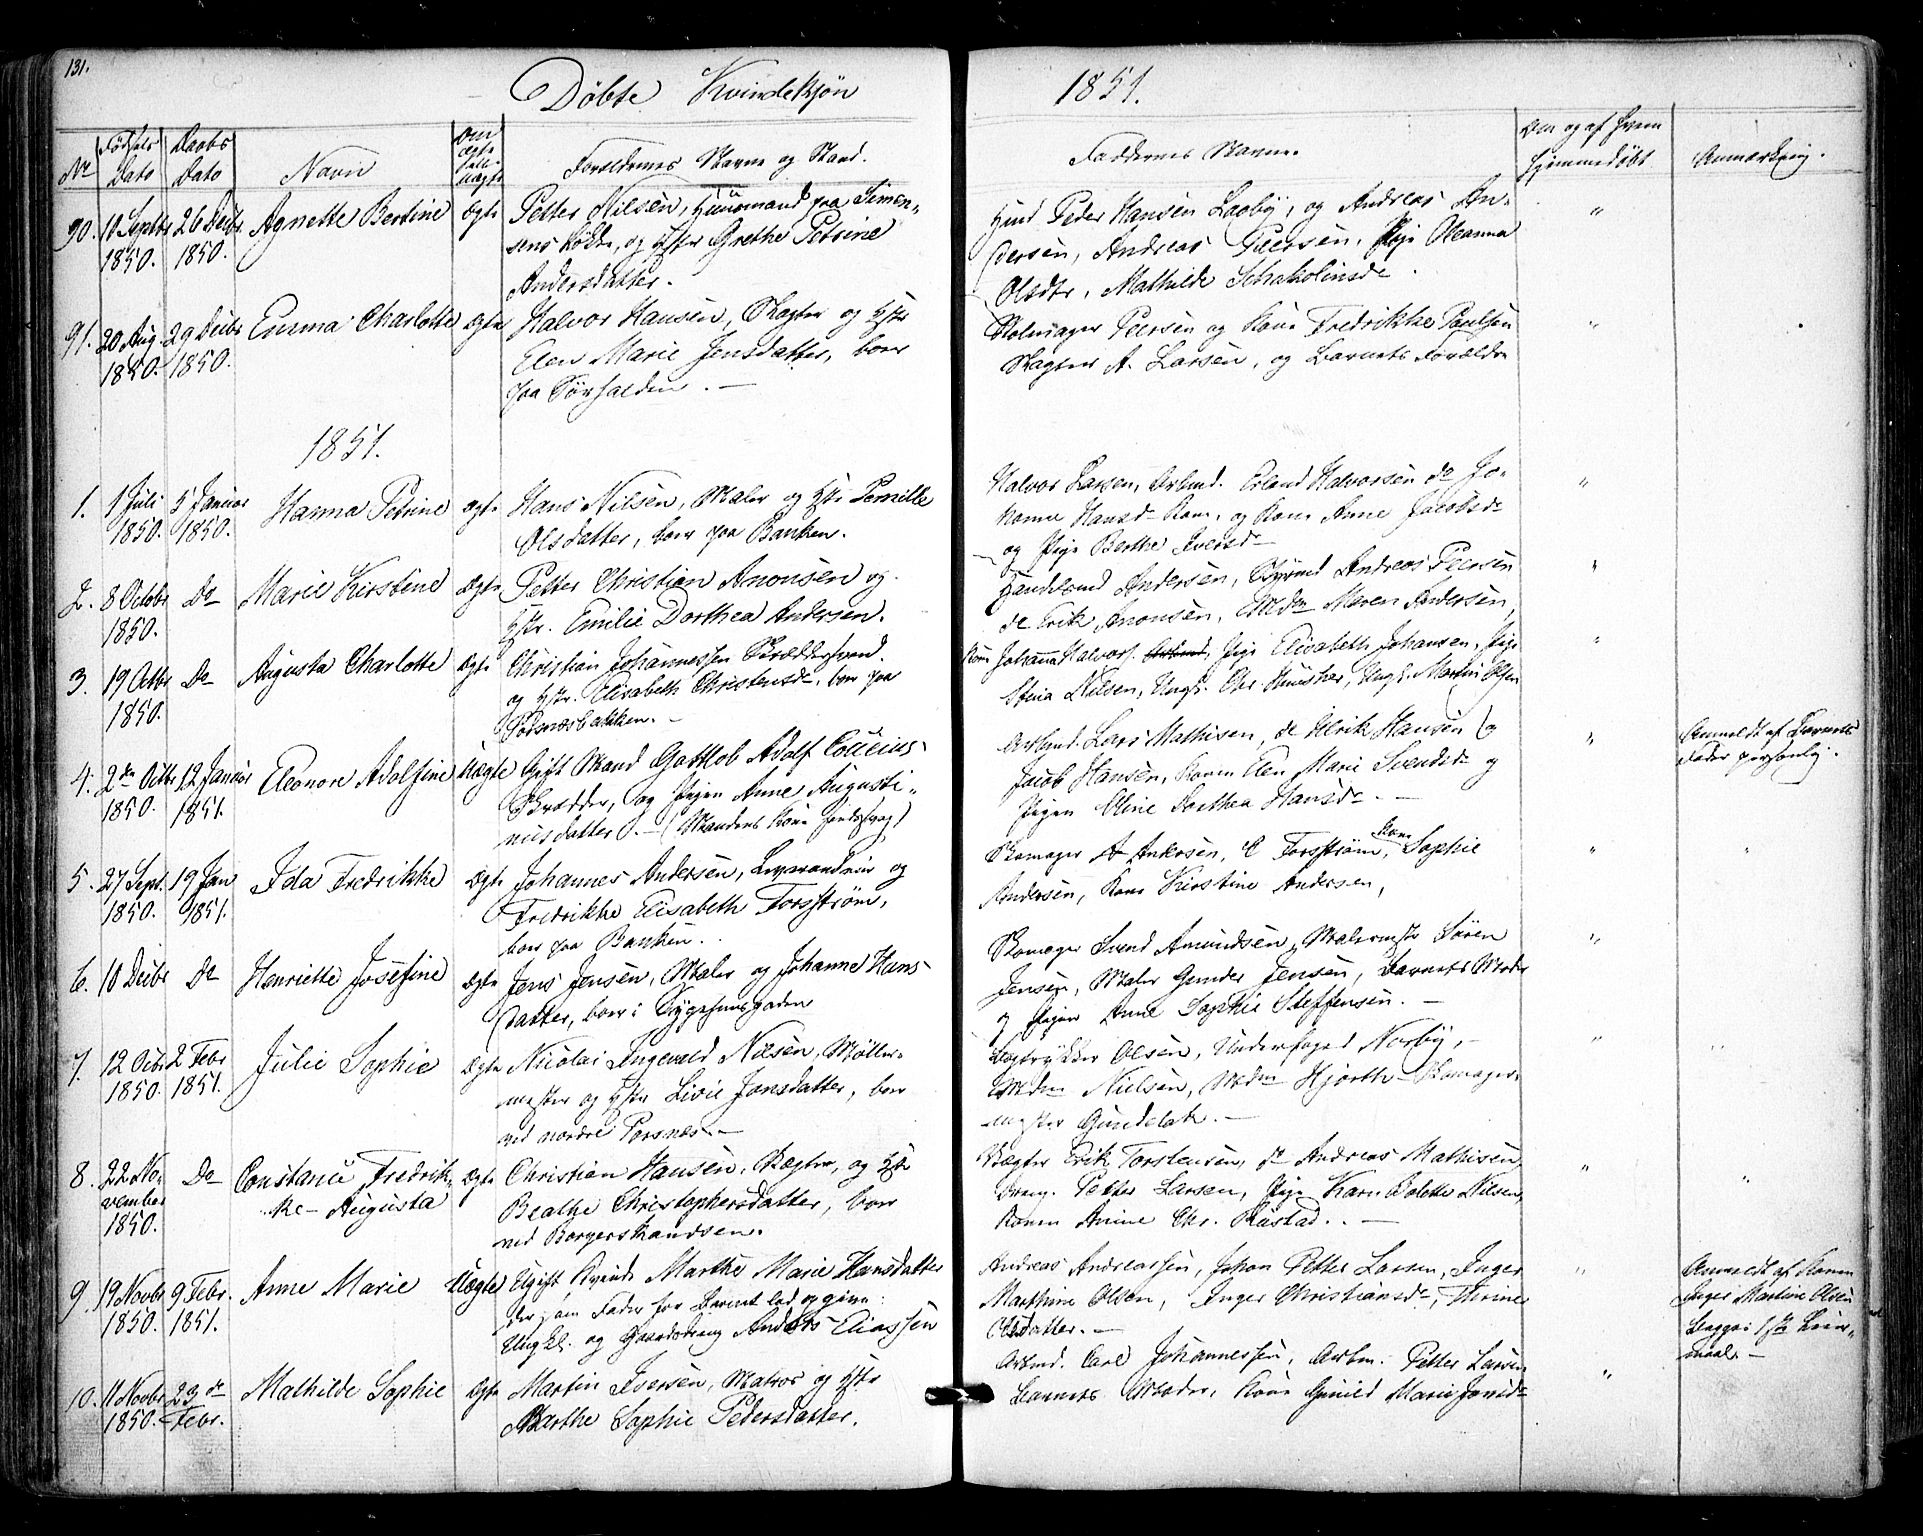 131.
Döbte Kvindekjön 1851.
No Födsels Dato Daabs Dato Navn Om ægte eller uægte Forældrenes Navne og Stand. Faddernes Navne. Om og af hvem hjemmedöbt Anmærkning.
90. 10 Septbr 1850. 26 Decbr 1850. Agnette Bertine ægte Petter Nilsen, Huusmand paa Simen-
sens Lökke, og Hstr Grethe Petrine
Andersdatter.
Peder Hansen Laaby, og Andreas An-
dersen, Andreas Peersen, Pige Oleanna
Olsdtr, Mathilde
"
91. 20 Aug. 1850. 29 Decbr 1850. Emma Charlotte ægte Halvor Hansen, Vægter og Hstr
Elen Marie Jensdatter, boer
paa
Peersen og Kone Fredrikke Paulsen
Vægter A. Larsen, og Barnets Forældre
"
1851.
1. 1 Juli 1850. 5 Januar 1850. Hanna Petrine ægte Hans Nilsen, Maler og Hstr Pernille
Olsdatter, boer paa Banken.
Halvor Larsen, Arbmd. Erland Halvorsen do Jo-
hanne Hansd Kone, og Kone Anne Jacobsdr
og Pige Berthe Iversdr
"
2. 8 Octobr 1850. Do Marie Kirstine ægte Petter Christian Anonsen og
Hstr. Emilie Dorthea Andersen.
Andersen, Styrmd Andreas Peersen
do Erik Anonsen, Mdm Maren Andersen,
"
3. 19 Octbr 1850. Do Augusta Charlotte ægte Christian Johannessen Skrædersvend.
og Hstr. Elisabeth Christensdr. boer paa
Kone Johanna Halvors. Pige Elisabeth Johansen, Pige
Stina Nilsen, Ungk. Chr. Ungk. Martin Olsen
"
4. 2den Octbr 1850. 12 Januar 1851. Eleonore Adolfine Uægte Gift Mand Gottlob Adolf
Skrædder, og Pigen Anne Augusti-
nusdatter. - (Mandens Kone
Arbmd. Lars Mathisen, do Ulrik Hansen og
Jacob Hansen, Konen Elen Marie Svendsdr og
Pigen Oline Dorthea Hansdr. -
" Anmeldt af Barnets
Fader personlig.
5. 27 Sept. 1850. 19 Jan 1851. Ida Fredrikke ægte Johannes Andersen, og
Fredrikke Elisabeth Forsström,
boer paa Banken.
Skomager A Andersen, C Forsström, Kone Sophie
Andersen, Kone Kirstine Andersen,
" "
6. 10 Decbr Do Henriette Josefine ægte Jens Jensen, Maler og Johanne Hans-
datter, boer i Sygehuusgaden
Skomager Svend Amundsen, Malermstr Sören
Jensen, Maler Gunder Jensen, Barnets Moder
og Pigen Anne Sophie Steffensen. -
"
7. 12 Octbr 1850. 2 Febr 1851. Julie Sophie ægte Nicolai Ingevald Nilsen, Möller-
mester og Hstr Livie Jonsdatter, boer
ved nordre Porsnæs. -
Bogtrykker Olsen, Underfoged Norby, -
Mdm Nielsen, Mdm Hjorth Skomager-
mester Gundelak. -
" "
8. 22 No-
vember
1850. Do Constance Fredrik-
ke Augusta ægte Christian Hansen, Vægter, og Hstr
Beathe Christophersdatter, boer
ved Borgerskandsen.
Vægter Erik Torstensen, do Andreas Mathisen
Dreng. Petter Larsen, Pige Karn Bolette Nilsen,
Konen Anine Chr. Rustad. -
" "
9. 19 Novbr 1850. 9 Febr. 1851. Anne Marie Uægte Ugift Qvinde Marthe Marie Hansdatter
der som Fader for Barnet lod opgive:
Ungkl. og Gaardsdreng Anders Eliassen
Andreas Andreassen, Johan Petter Larsen, Inger
Marthine Olsen, Inger Christiansdr, Thrine
Olsdatter. -
" Anmeldt af Konen
Inger Martine Olsen
Begges 1ste Leier-
maal. -
10. 11 Novbr 1850. 23 de Febr. Mathilde Sophie ægte Martin Iversen, Matros og Hstr
Marthe Sophie Pedersdatter.
Arbmd. Carl Johannessen, Arbm. Petter Larsen
Barnets Moder, Kone Gunild Marie Jonsdr
"